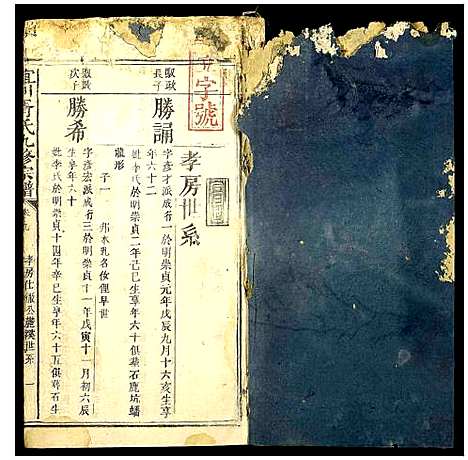 字號
孝房世系
馭政長子
勝誦
字彥才派成有一於明崇貞元年戊辰九月十六亥生享
年六十二
姓李氏於明崇貞二年己巳生享年六十俱葬石鹿坑蟠
龍形
子一
邦本乳名俚早世
馭政次子
勝希
字彥宏派成有三於明崇貞十一年戊寅十一月初六辰
生享年六十
姓李氏於明崇貞十四年辛巳生享年六十五俱葬石生
氏九修宗譜
孝房仕公 世系
一